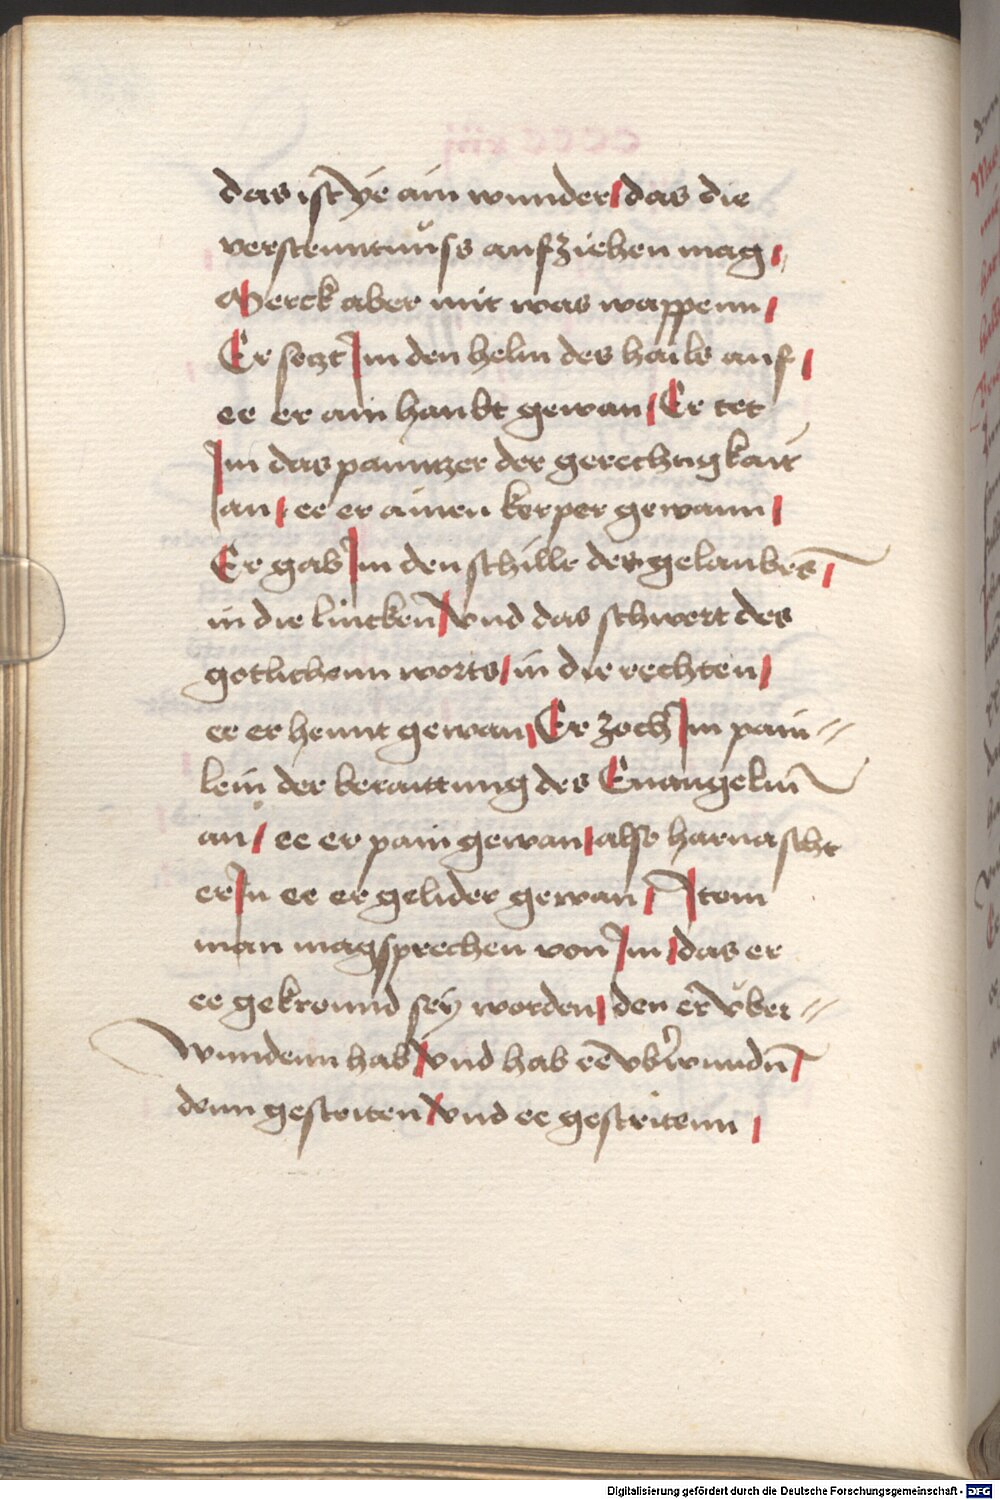 das ist ye ain wunder das die
verstenntnŭss aufziehen mag
Merck aber mit was wappenn
Er setzt Im den helm des hails auf
ee er ain haubt gewan Er tet
Im das panntzer der gerechtigkait
an ee er ainen korper gewann
Er gab Im den schillt des gelaubes
in die lincken vnd das schwert des
gotlichenn worts in die rechten
ee er hennt gewan Er zoch Im pain=
lein der beraittung des Euangelin
an ee er pain gewan also harnascht
er In ee er gelider gewan Item
man mag sprechen von Im das er
ee gekronnd sey worden den er v̆ber=
wundenn hab vnd hab ee vb'wundn̄
denn gestriten vnd ee gestritenn
Digitalisierung gefördert durch die Deutsche Forschungsgemeinschaft - DFG